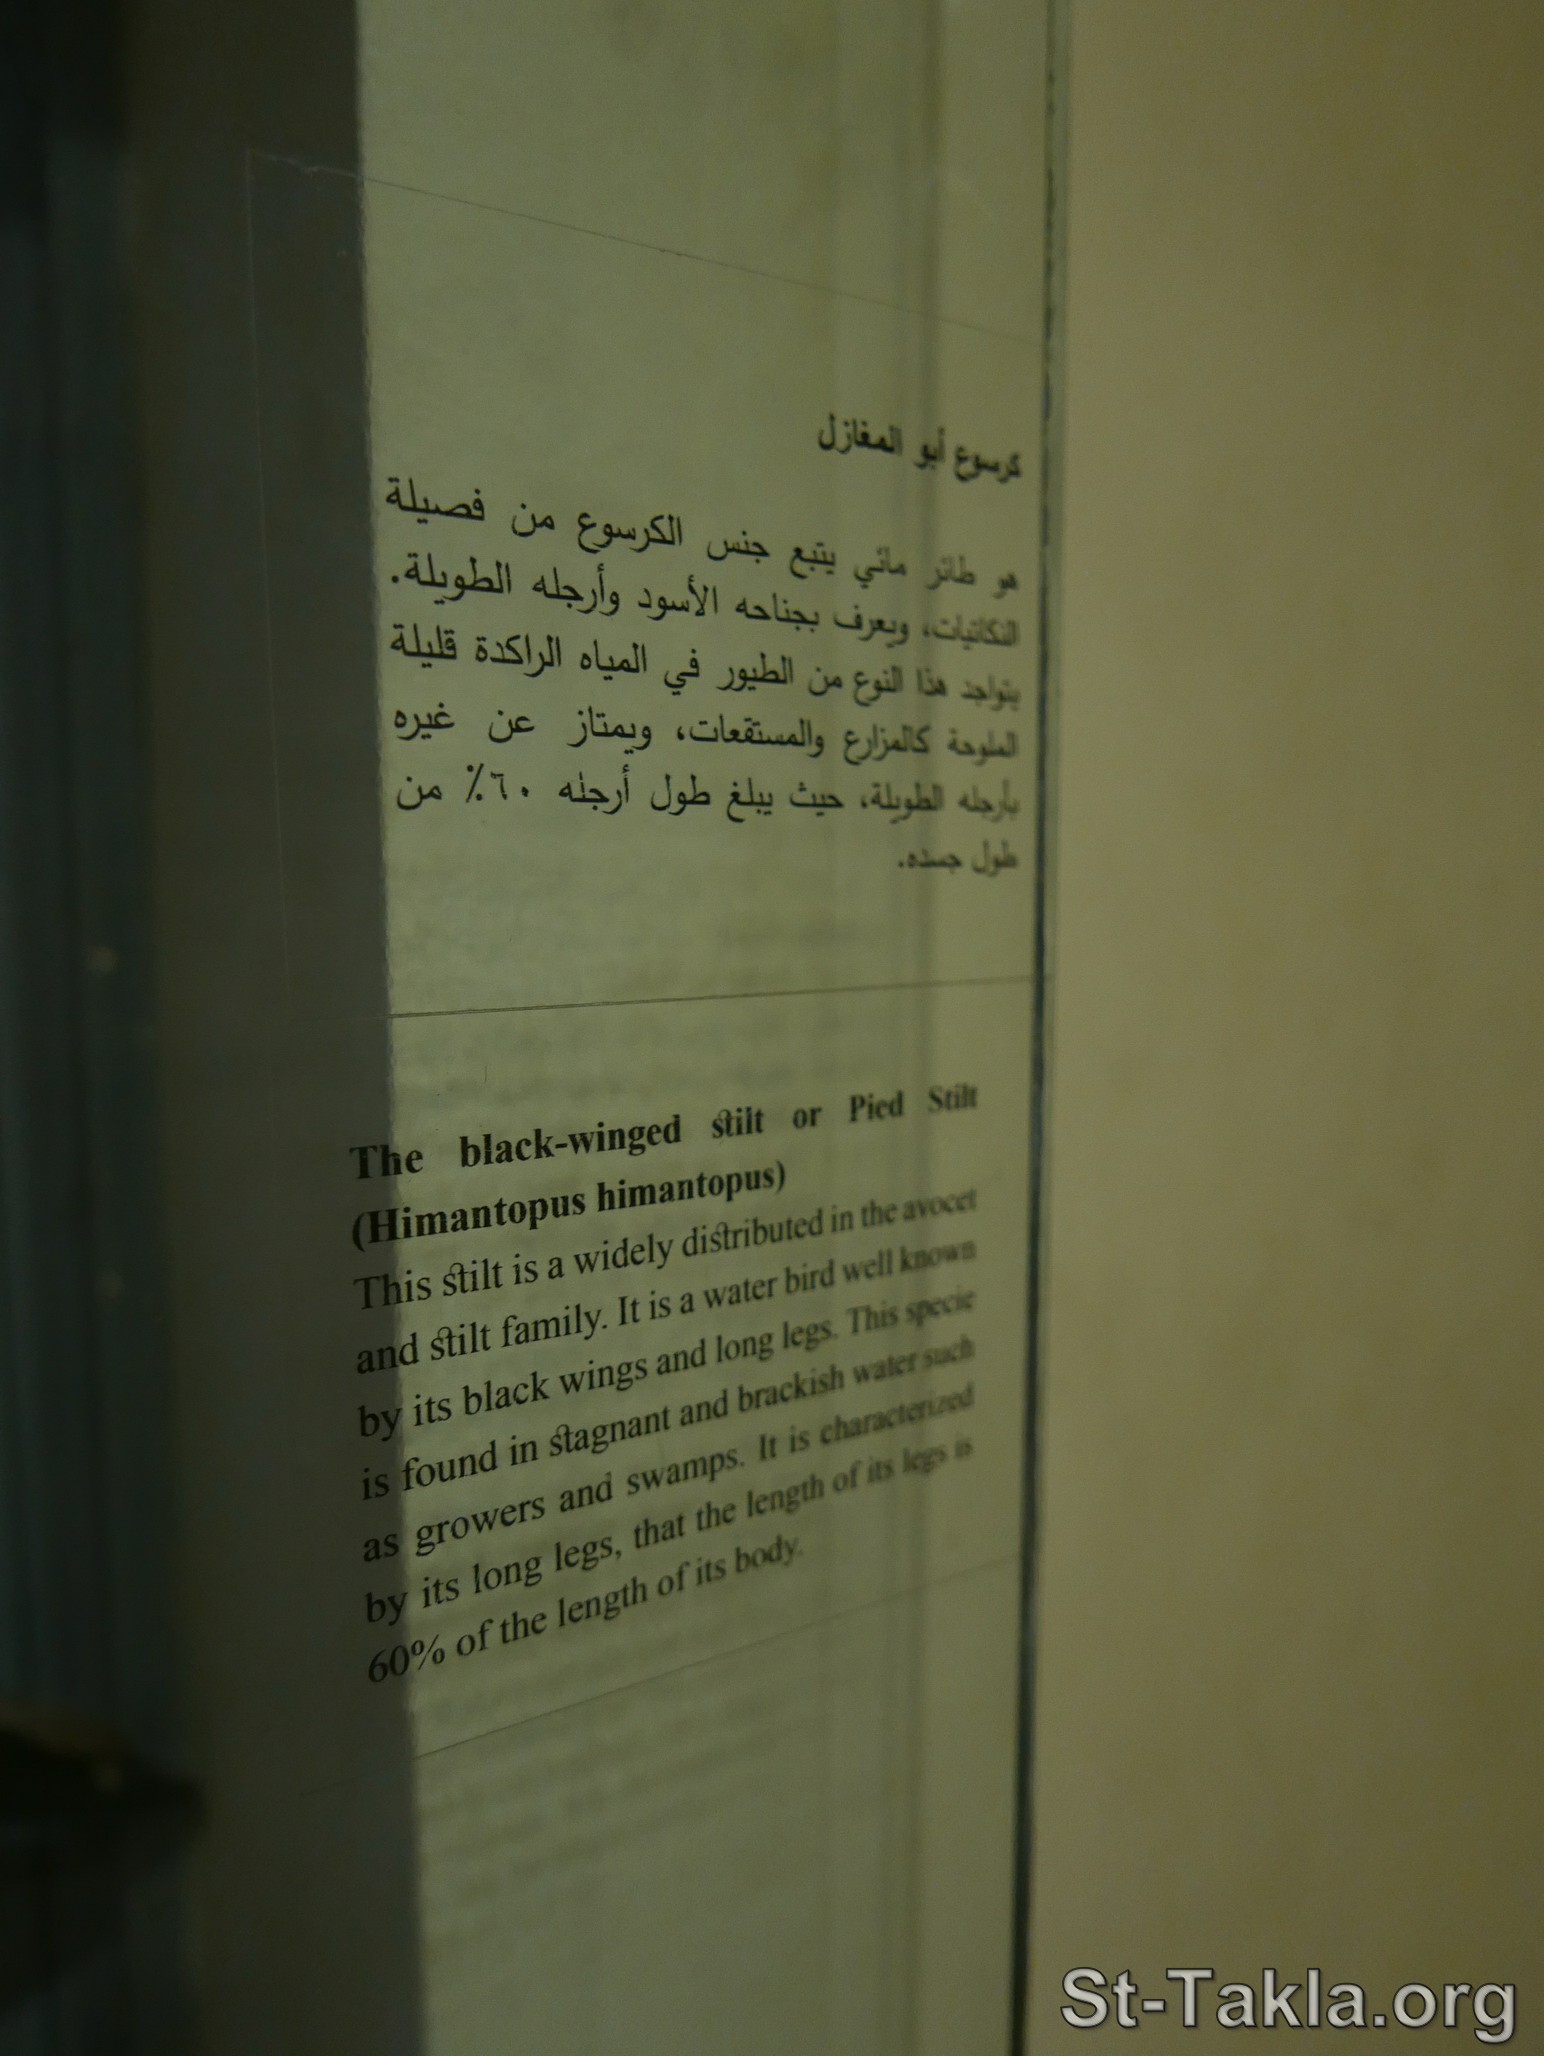 كرسوع أبو المغازل
هو طائر مائي يتبع جنس الكرسوع من فصيلة
النكاتيات، ويعرف بجناحه الأسود وأرجله الطويلة.
يتواجد هذا النوع من الطيور في المياه الراكدة قليلة
الملوحة كالمزارع والمستقعات، ويمتاز عن غيره
بأرجله الطويلة، حيث يبلغ طول أرجله ٦٠٪ من
طول جسده.
The black-winged stilt or Pied Stilt
(Himantopus himantopus)
This stilt is a widely distributed in the avocet
and stilt family. It is a water bird well known
by its black wings and long legs. This specie
is found in stagnant and brackish water such
as growers and swamps. It is characterized
by its long legs, that the length of its legs is
60% of the length of its body.
St-Takla.org